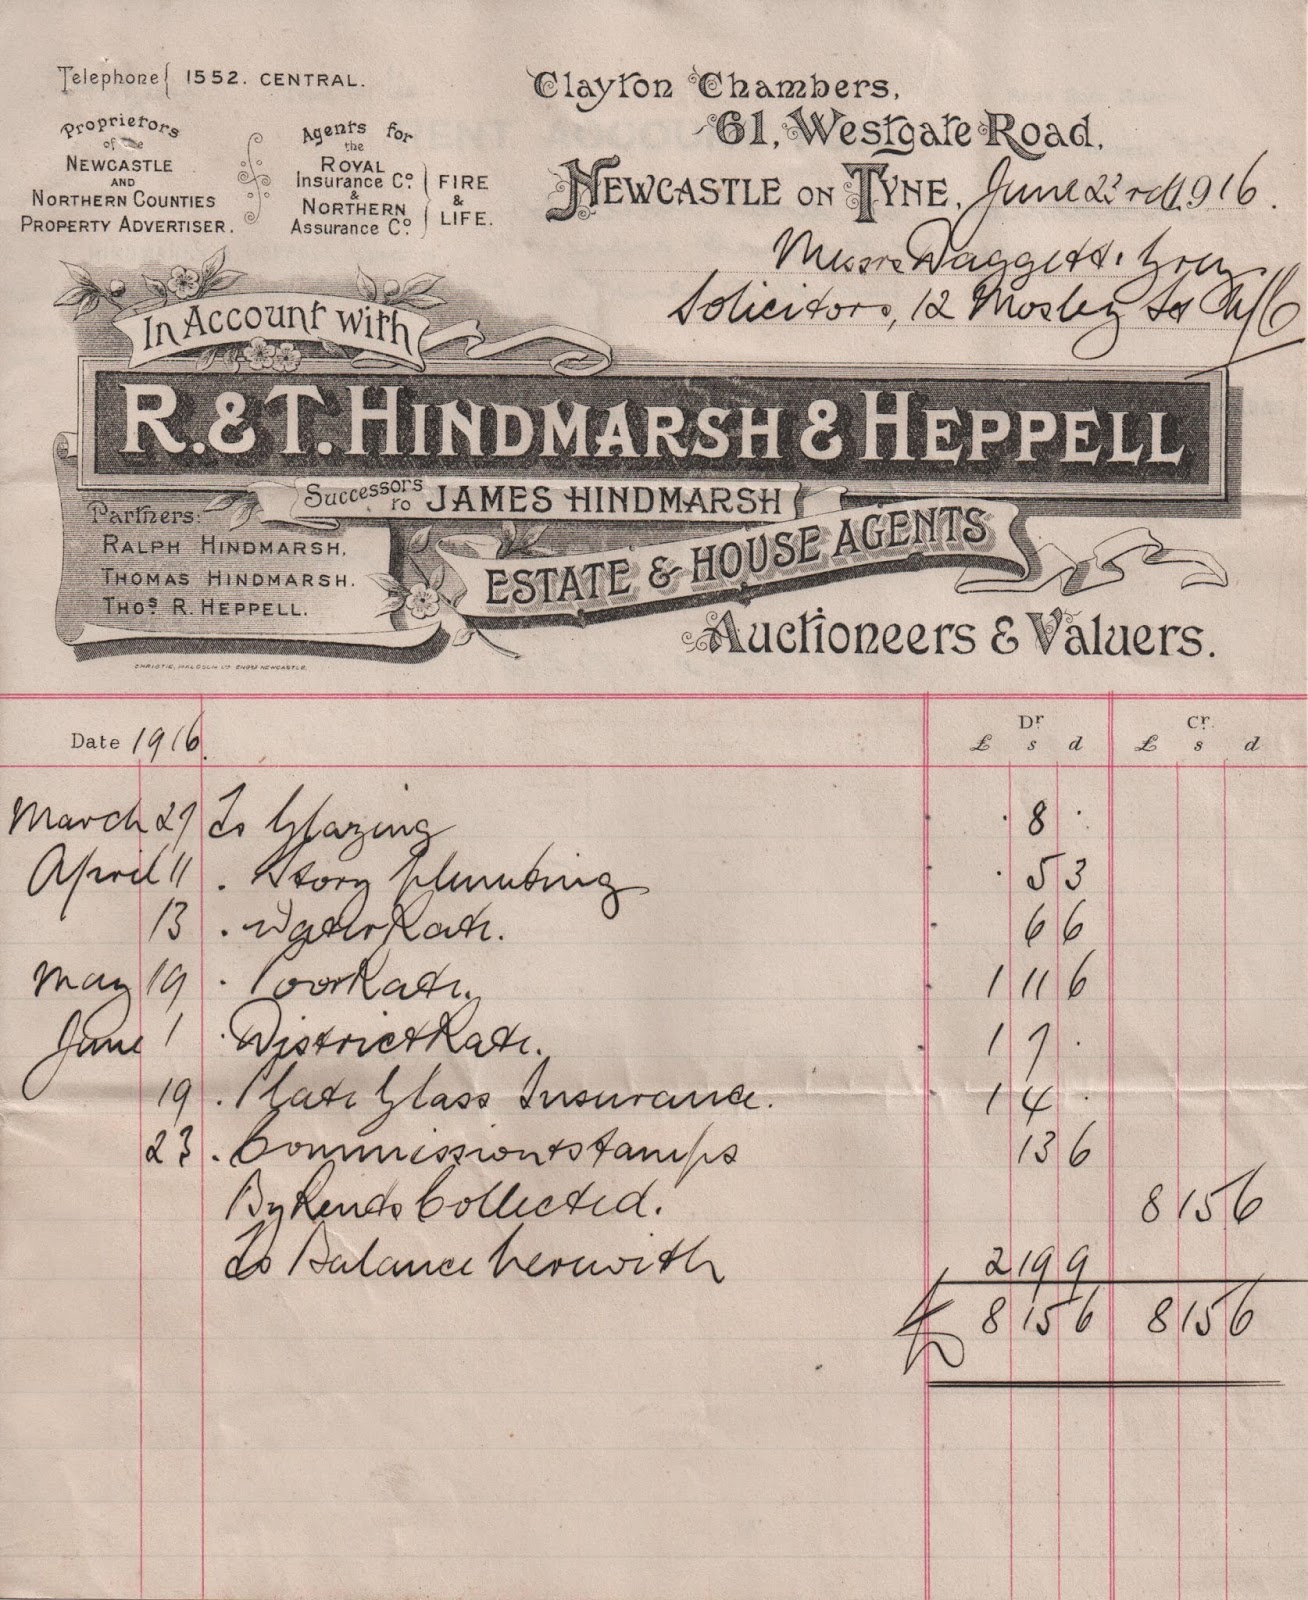 Telephone { 1552. CENTRAL.
Proprietors
of the
NEWCASTLE
AND
NORTHERN COUNTIES
PROPERTY ADVERTISER.
Agents for
the
ROYAL
Insurance Co.
&
NORTHERN
Assurance Co.
FIRE
&
LIFE.
Clayton Chambers,
61, Westgate Road,
NEWCASTLE ON TYNE, June 23rd 1916.
Messrs Daggett & Grey
Solicitors, 12 Mosley St N/C
In Account with
R. & T. HINDMARSH & HEPPELL
Successors to JAMES HINDMARSH
ESTATE & HOUSE AGENTS
Auctioneers & Valuers.
Partners:
RALPH HINDMARSH.
THOMAS HINDMARSH.
THOS R. HEPPELL.
CHRISTIE, MALCOLM LD ENGRS NEWCASTLE.
Dr Cr.
Date 1916. £ s d £ s d
March 27 To Glazing . 8 .
April 11 . Story plumbing . 5 3
13 . Water Rate. 6 6
May 19 . Poor Rate. 1 11 6
June 1 . District Rate. 1 7 .
19 . Plate Glass Insurance. 1 4 .
23 . Commission & stamps 13 6
By Rents Collected. 8 15 6
To Balance herewith 2 19 9
£ 8 15 6 8 15 6